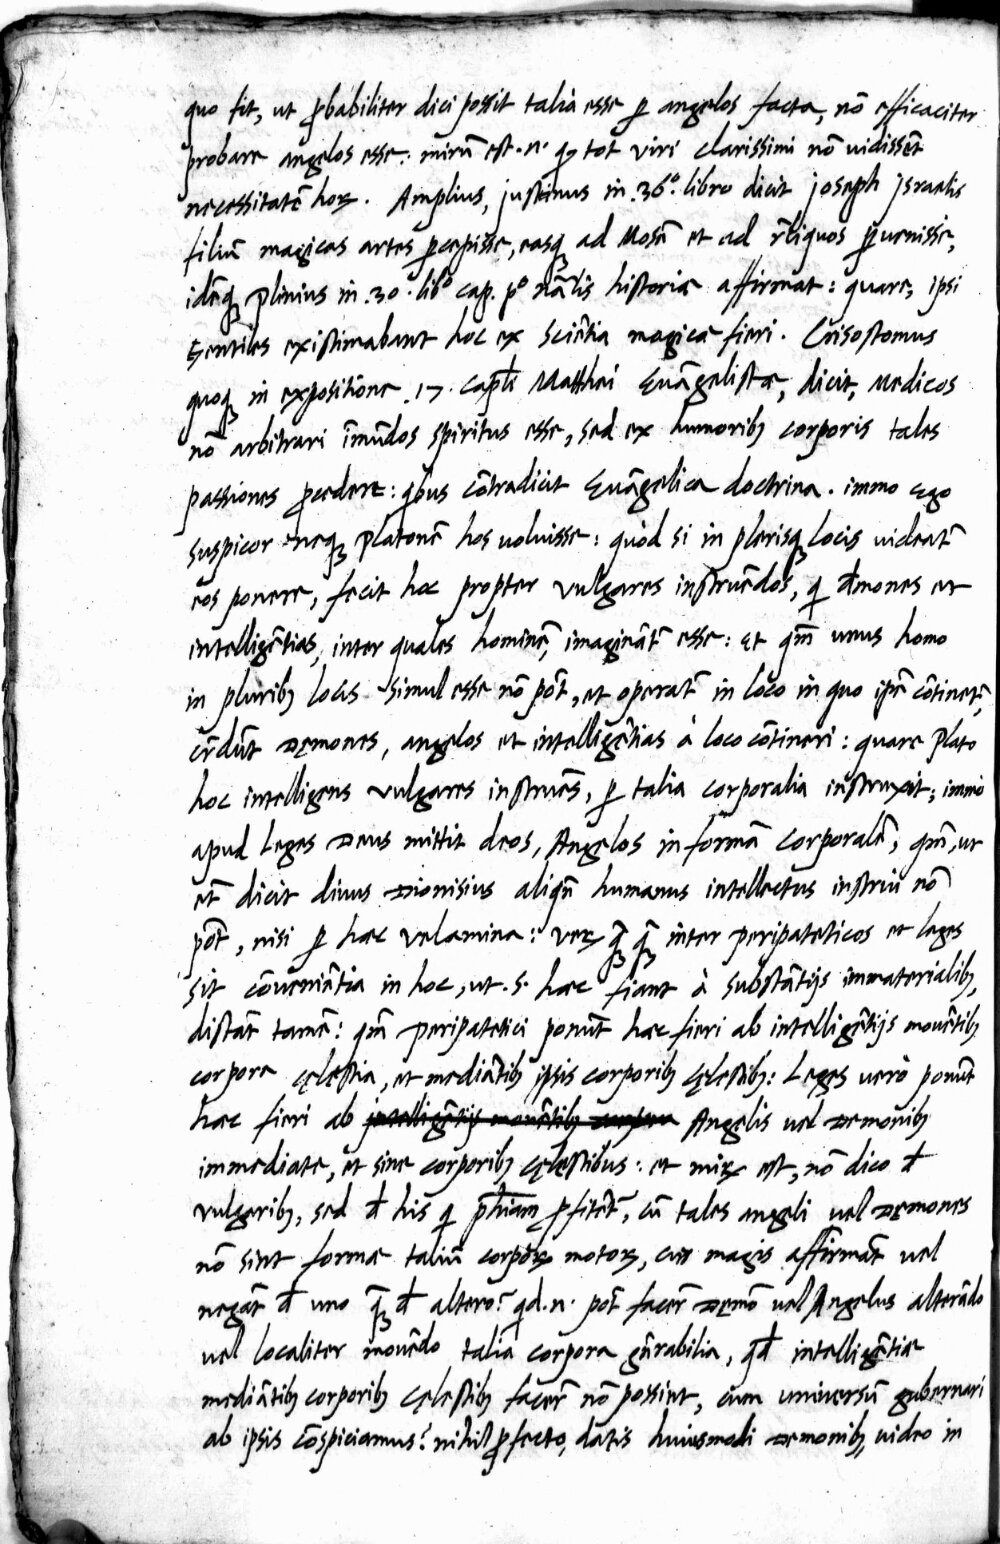 quo fit, ut ꝓbabiliter dici possit talia esse ꝑ angelos facta, nō efficaciter
probare angelos esse: mirū est .n. ꝙ tot viri clarissimi nō uidissēt
necessitatē hoꝝ. Amplius, justinus in .36.º libro dicit joseph jsraelis
filiū magicas artes ꝑcepisse, easqꝫ ad Mosē et ad r̄liquos ꝑuenisse,
idēqꝫ Plinius in .30. libº cap. pº nālis historiæ affirmat: quare, ipsi
Gentiles existimabant hoc ex sciētia magica fieri. Crisostomus
quoqꝫ in expositiōne .17. capl̄i Matthei Euāgelistæ, dicit, Medicos
nō arbitrari īmūdos spiritus esse, sed ex humoribꝫ corporis tales
passiones ꝓcedere: qbus cōtradicit Euāgelica doctrina. immo Ego
suspicor neqꝫ Platonē hos uoluisse: quòd si in plerisqꝫ locis uideat̄
eos ponere, fecit hoc propter vulgares instruēdos, qi dæmones et
intelligētias, inter quales hominē, imagināt̄ esse: Et qm̄ unus homo
in pluribꝫ locis simul esse nō pōt, et operat̄ in loco in quo ipse cōtinet̄,
cr̄dūt Dęmones, angelos et intelligētias à loco cōtineri: quare Plato
hoc intelligens vulgares instruēs, ꝑ talia corporalia instruxit; immo
apud Leges Deus mittit deos, Angelos in formā corporalē; qm̄, ut
et̄ dicit diuus Dionisius aliqn̄ humanus intellectus instrui nō
pōt, nisi ꝑ hæc velamina: veꝝ qꝫ qꝫ inter Peripateticos et leges
sit cōueniētia in hoc, ut .s. hæc fiant à substātijs immaterialibꝫ,
distāt tamē: qm̄ Peripatetici ponūt hæc fieri ab intelligētijs mouētibꝫ
corpora cęlestia, et mediātibꝫ ipsis corporibꝫ cęlestibꝫ: Leges uerò ponūt
hæc fieri ab intelligētijs mouētibꝫ corpora Angelis uel Demonibꝫ
immediate, et sine corporibꝫ cęlestibus: et miꝝ est, nō dico đ
vulgaribꝫ, sed đ his qi ph̄iam ꝓfitēt̄, cū tales angeli uel Dęmones
nō sint formæ taliū corpoꝝ motoꝝ, cur magis affirmāt uel
negāt đ uno qꝫ đ altero? qd .n. pōt facer̄ Dęmō uel Angelus alterādo
uel localiter mouēdo talia corpora gn̄rabilia, qđ intelligētiæ
mediātibꝫ corporibꝫ cęlestibꝫ facer̄ nō possint, cum uniuersū gubernari
ab ipsis cōspiciamus? nihil ꝓfecto, datis huiusmodi Demonibꝫ, uideo in